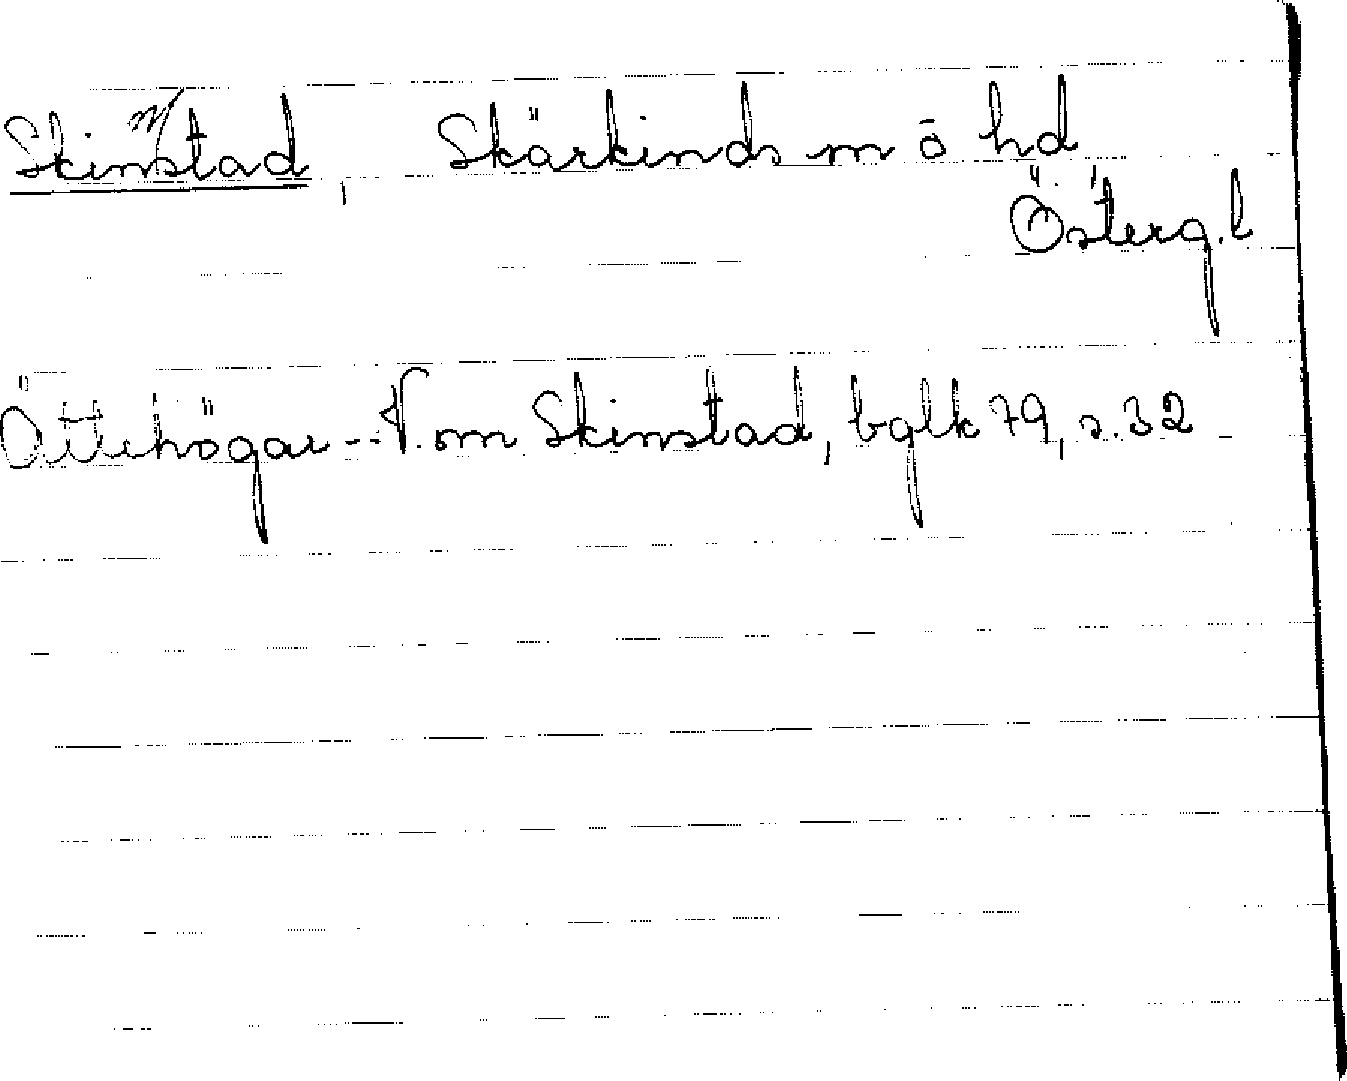 Skinnstad, Skärkinds sn o hd
Österg. l
Ättehögar -- V. om Skinstad, bglk 79, s. 32